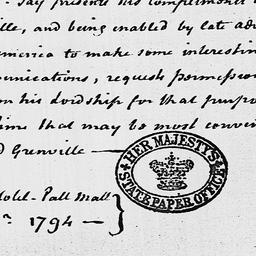 Jay presents his compliments
ille, and being enabled by late adv
merica to make some interestin
munications, requests Permission
on his lordship for that purpo
time that may be most conveni
d Grenville —
HER MAJESTY'S
STATE PAPER OFFICE
otel - Pall Mall
1794 —